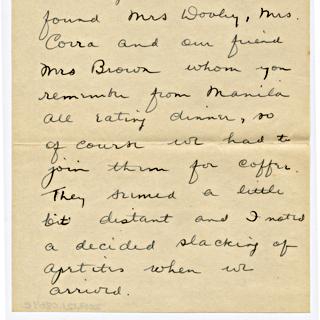 found Mrs Dooley, Mrs.
Corra and our friend
Mrs Brown whom you
remember from Manila
all eating dinner, so
of course we had to
join them for coffee.
They seemed a little
bit distant and I noted
a decided slacking of
apetites when we
arrived.